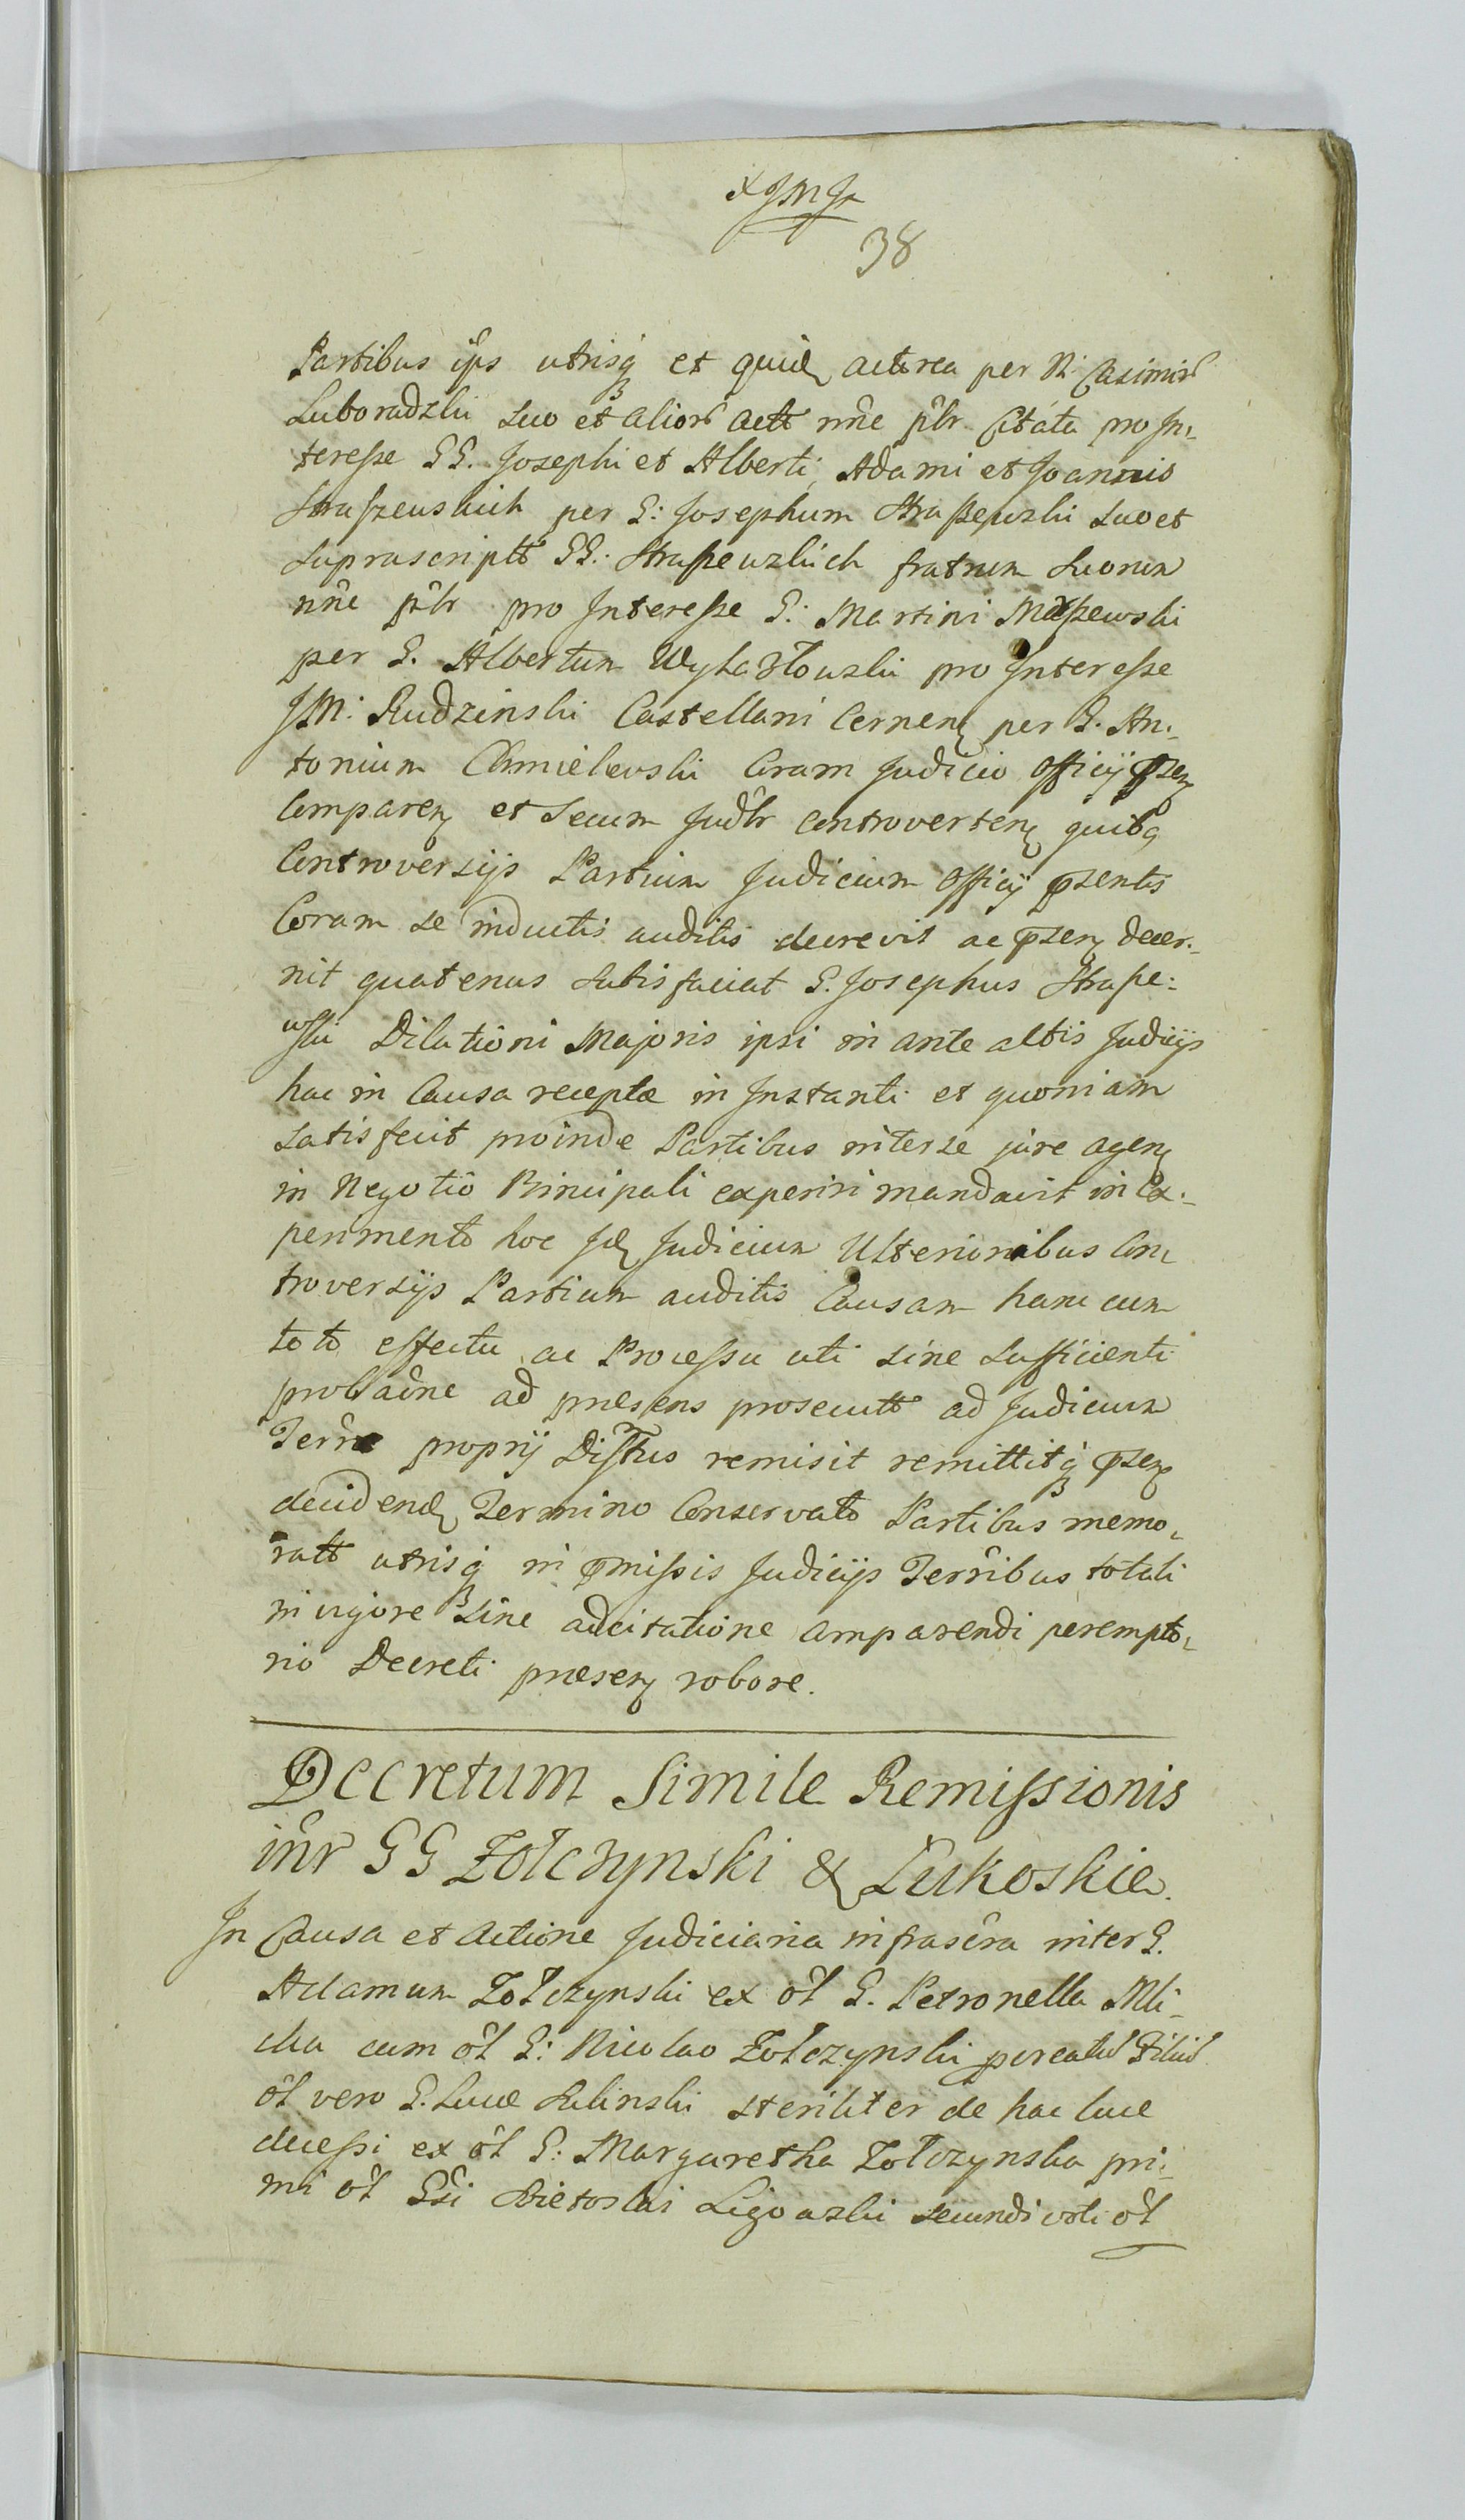 38
Partibus ip̂s utrisq et quid actorea per N. Casimir
Luboradzki suo et alior actt nn̂e pl̂r Citata pro In-
teresse GG. Josephi et Alberti, Adami et Joannis
Straszewskich per G: Josephum Straszewski suo et
suprascriptt GG: Straszewskich fratrum suorum
nn̂e pl̂r pro Interesse G: Martini Maszewski
per G. Albertum Wyhazłowski pro Interesse
JM: Rudzinski Castellani Cernen per G. An-
tonium Chmielewski Coram Judicio Officij pzen
Comparen et secum Judl̂r controverten quibq
Controversijs Partium Judicium Officij pzentis
Coram se inductis auditis decrevit ac pzen decer-
nit quatenus satisfaciat G. Josephus Strasze-
wski Dilationi Majoris ipsi in ante actis Judicijs
hac in Causa receptæ in Instanti et quoniam
satisfecit proinde Partibus inter se jure agen
in Negotio Principali experiri mandavit in Ex-
perimento hoc Id Judicium Ulterioribus Con-
troversijs Partium auditis Causam hanc cum
toto effectu ac Processu uti sine sufficienti
probaĉne ad præsens prosecutt ad Judicium
Terr̂e proprij Disttus remisit remittitq pzen
decidend Termino Conservato Partibus memo-
ratt utrisq in pmissis Judicijs Terr̂ibus totali
in vigore sine adcitatione comparendi perempto-
rio Decreti præsen robore.
Decretum Simile Remissionis
int̂r GG Zołczynski & Łukoskie.
In Causa et actione Judiciaria infrasĉra inter G.
Adamum Zołczynski ex ol̂ G. Petronella Mli-
cka cum ol̂ G: Nicolao Zołczynski procreatu Filiu
ol̂ vero G. Lucæ Sulinski steriliter de hac luce
decessi ex ol̂ G: Margaretha Zołczynska pri-
mi ol̂ Gsi Ligowski secundi voti ol̂